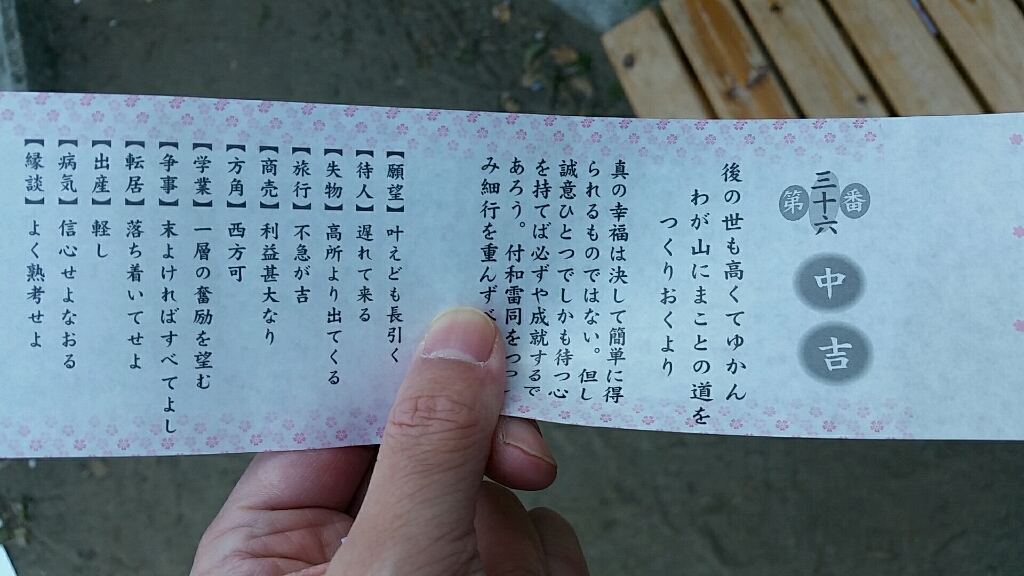 第三十六番
中吉
後の世も高くてゆかん
わが山にまことの道を
つくりおくより
真の幸福は決して簡単に得
られるものではない。但し
誠意ひとつでしかも待つ心
を持てば必ずや成就するで
あろう。付和雷同をつつ
み細行を重んずべ
【願望】叶えども長引く
【待人】遅れて来る
【失物】高所より出てくる
【旅行】不急が吉
【商売】利益甚大なり
【方角】西方可
【学業】一層の奮励を望む
【争事】末よければすべてよし
【転居】落ち着いてせよ
【出産】軽し
【病気】信心せよなおる
【縁談】よく熟考せよ